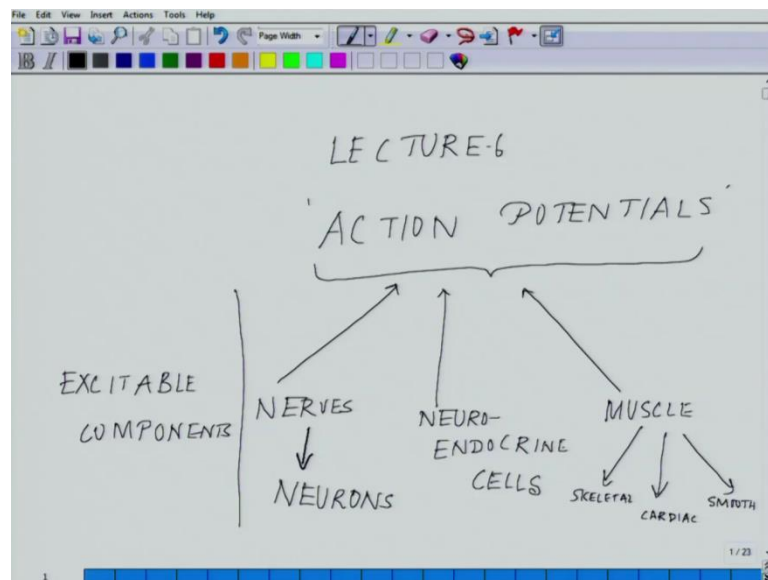 File Edit View Insert Actions Tools Help
Page Width
B I
LECTURE-6
'ACTION POTENTIALS'
EXCITABLE
COMPONENTS
NERVES
NEURONS
NEURO-
ENDOCRINE
CELLS
MUSCLE
SKELETAL
CARDIAC
SMOOTH
1 / 23
1